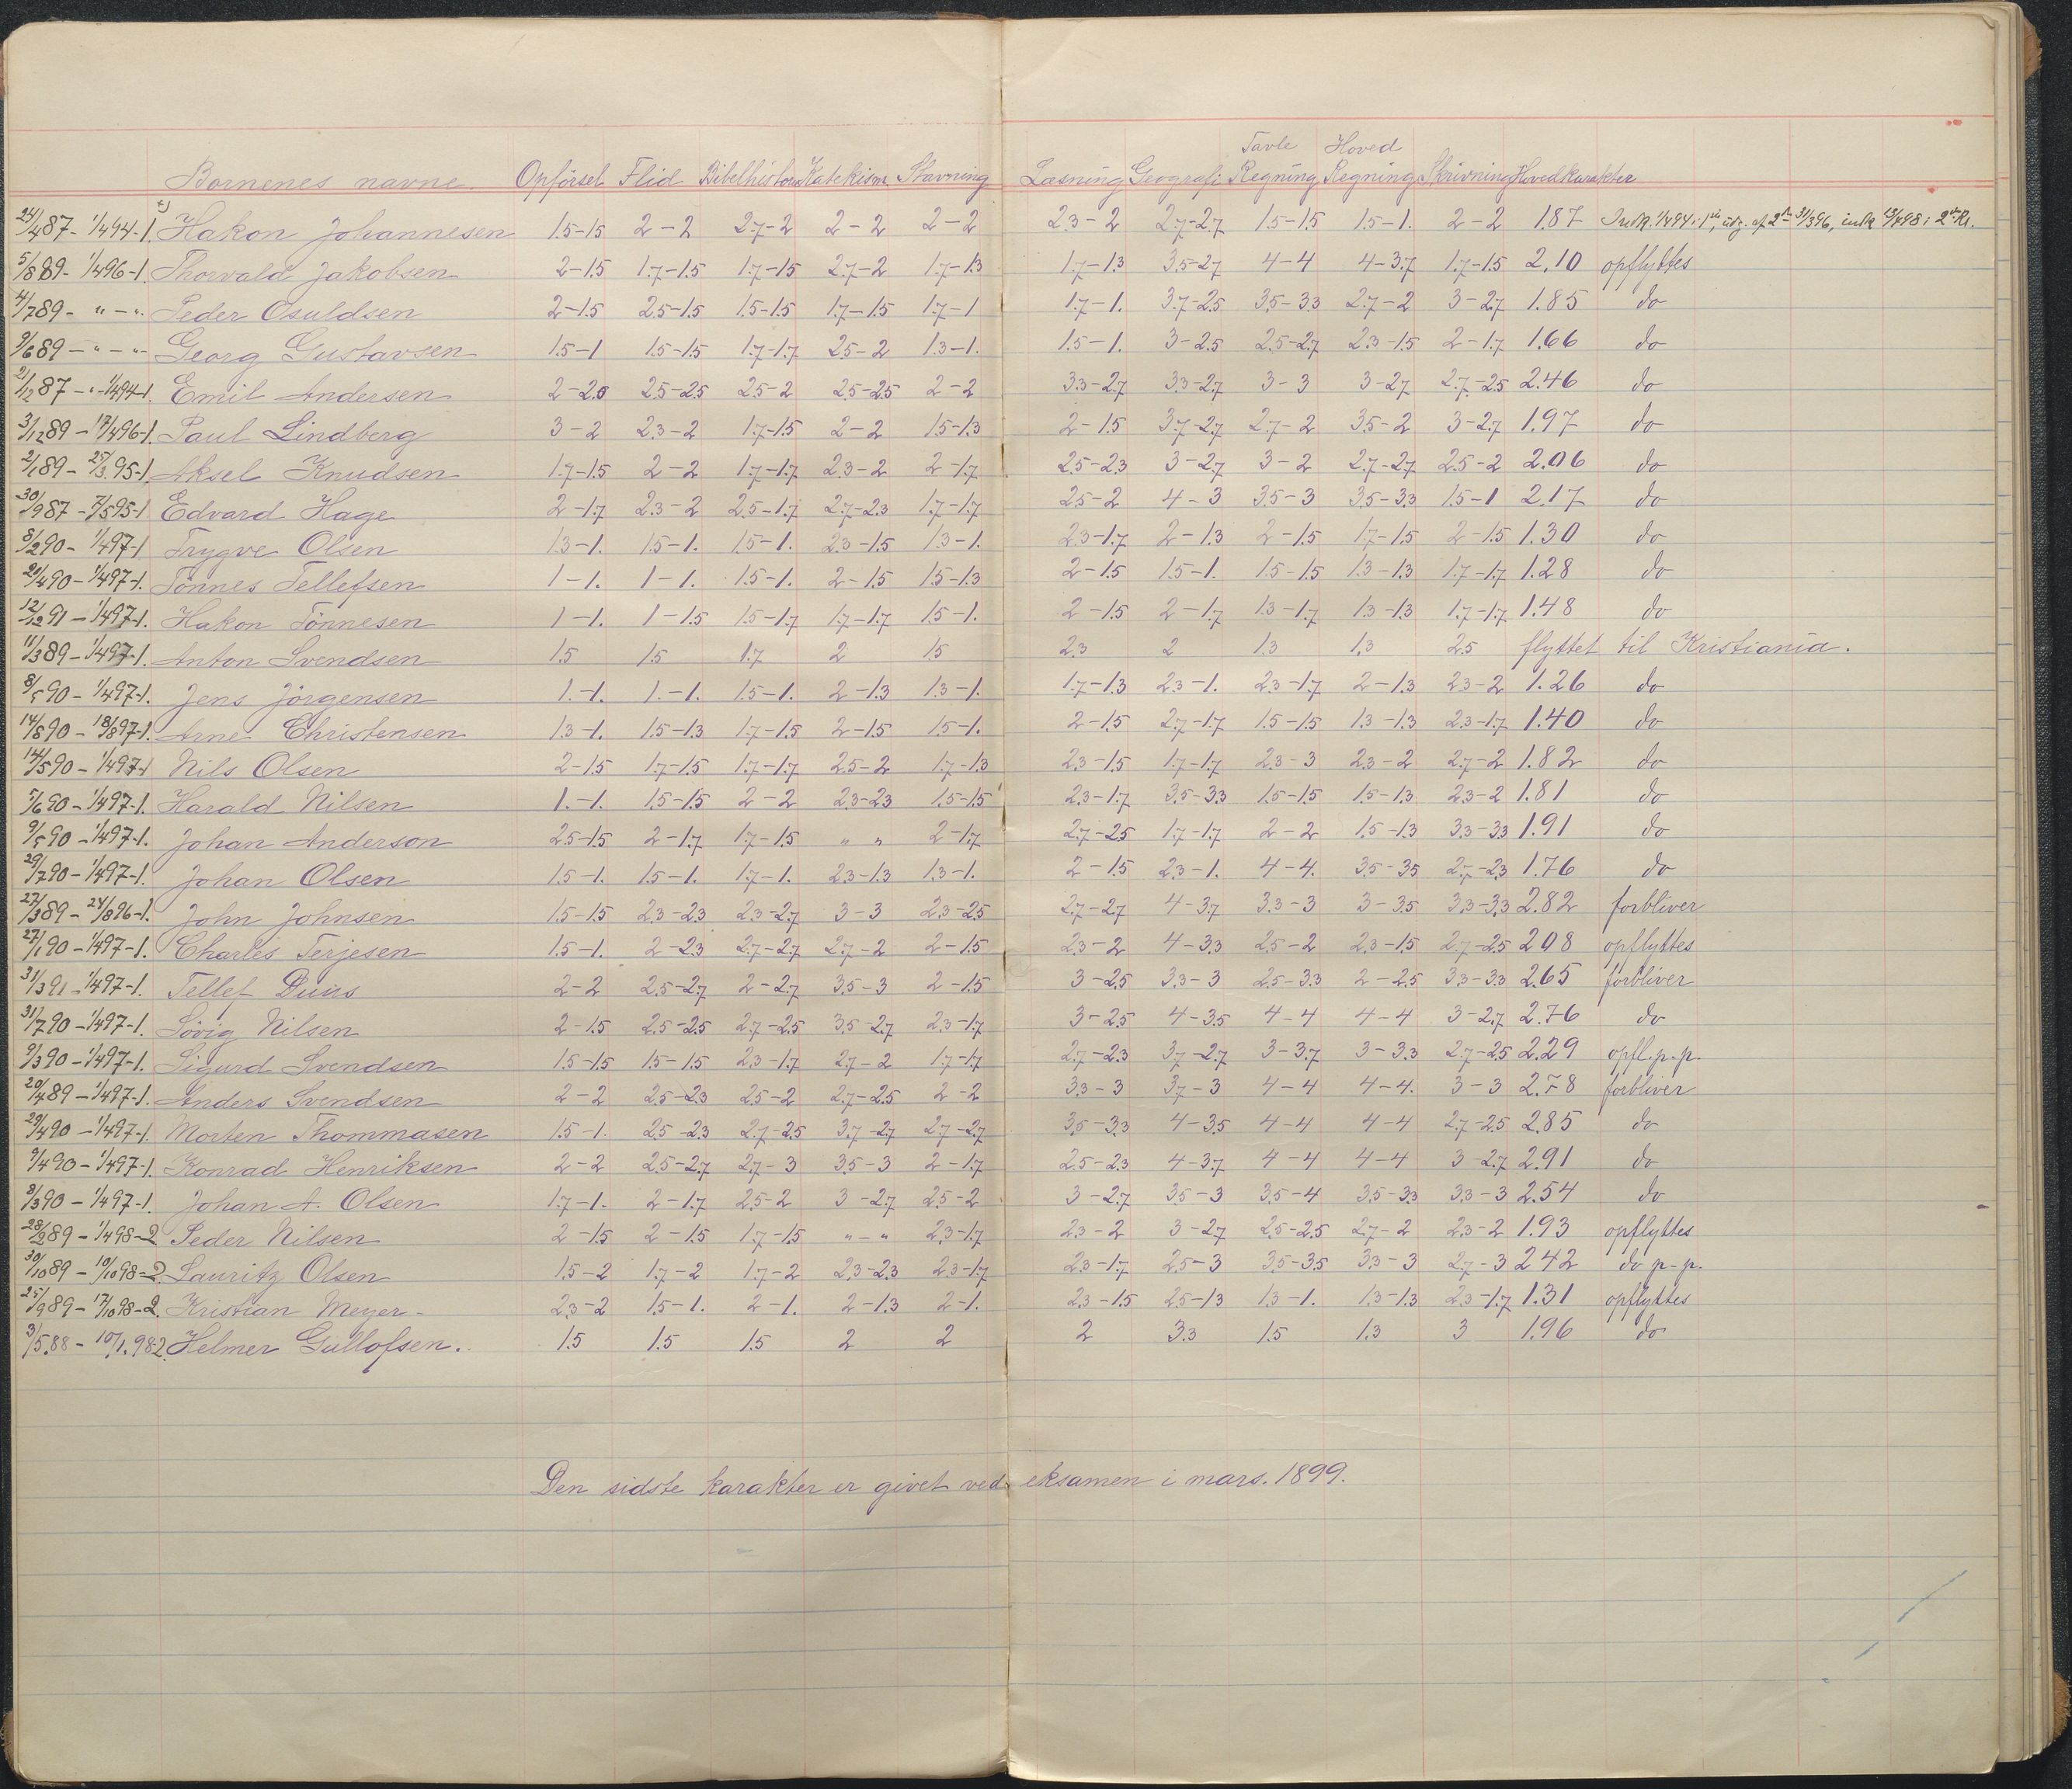 Tavle Hoved
Børnenes navne Opførsel Flid Bibelhistorie Katekism. Stavning Læsning Geografi Regning Regning Skrivning Hovedkarakter
24/4 87 - 1/4 94-1 Hakon Johannesen 1.5-1.5 2-2 2.7-2 2-2 2-2 2.3-2 2.7-2.7 1.5-1.5 1.5-1. 2-2 1.87 Indk. 1/4 94 i 1ste, udg. af 2den 31/3 96, indk 13/4 98 i 2den Kl.
5/8 89 - 1/4 96-1. Thorvald Jakobsen 2-1.5 1.7-1.5 1.7-1.5 2.7-2 1.7-1.3 1.7-1.3 3.5-2.7 4-4 4-3.7 1.7-1.5 2.10 opflyttes
4/7 89 - " - " Peder Osuldsen 2-1.5 2.5-1.5 1.5-1.5 1.7-1.5 1.7-1 1.7-1. 3.7-2.5 3.5-3.3 2.7-2 3-2.7 1.85 do
9/6 89 - " - " Georg Gustavsen 1.5-1 1.5-1.5 1.7-1.7 2.5-2 1.3-1. 1.5-1. 3-2.5 2.5-2.7 2.3-1.5 2-1.7 1.66 do
21/12 87 - " - 1/4 94-1. Emil Andersen 2-2.5 2.5-2.5 2.5-2 2.5-2.5 2-2 3.3-2.7 3.3-2.7 3-3 3-2.7 2.7-2.5 2.46 do
3/12 89 - 17/4 96-1. Paul Lindberg 3-2 2.3-2 1.7-1.5 2-2 1.5-1.3 2-1.5 3.7-2.7 2.7-2 3.5-2 3-2.7 1.97 do
2/1 89 - 25/3 95-1. Aksel Knudsen 1.7-1.5 2-2 1.7-1.7 2.3-2 2-1.7 2.5-2.3 3-2.7 3-2 2.7-2.7 2.5-2 2.06 do
30/9 87 - 7/5 95-1 Edvard Hage 2-1.7 2.3-2 2.5-1.7 2.7-2.3 1.7-1.7 2.5-2 4-3 3.5-3 3.5-3.3 1.5-1 2.17 do
8/2 90 - 1/4 97-1 Trygve Olsen 1.3-1. 1.5-1. 1.5-1. 2.3-1.5 1.3-1. 2.3-1.7 2-1.3 2-1.5 1.7-1.5 2-1.5 1.30 do
20/4 90 - 1/4 97-1. Tönnes Tellefsen 1-1. 1-1. 1.5-1. 2-1.5 1.5-1.3 2-1.5 1.5-1. 1.5-1.5 1.3-1.3 1.7-1.7 1.28 do
12/12 91 - 1/4 97-1. Hakon Tönnesen 1-1. 1-1.5 1.5-1.7 1.7-1.7 1.5-1. 2-1.5 2-1.7 1.3-1.7 1.3-1.3 1.7-1.7 1.48 do
11/3 89 - 1/4 97-1. Anton Svendsen 1.5 1.5 1.7 2 1.5 2.3 2 1.3 1.3 2.5 flyttet til Kristiania.
8/5 90 - 1/4 97-1. Jens Jörgensen 1.-1. 1.-1. 1.5-1. 2-1.3 1.3-1. 1.7-1.3 2.3-1. 2.3-1.7 2-1.3 2.3-2 1.26 do
14/8 90 - 18/8 97-1. Arne Christensen 1.3-1. 1.5-1.3 1.7-1.5 2-1.5 1.5-1. 2-1.5 2.7-1.7 1.5-1.5 1.3-1.3 2.3-1.7 1.40 do
14/5 90 - 1/4 97-1 Nils Olsen 2-1.5 1.7-1.5 1.7-1.7 2.5-2 1.7-1.3 2.3-1.5 1.7-1.7 2.3-3 2.3-2 2.7-2 1.82 do
5/6 90 - 1/4 97-1. Harald Nilsen 1.-1. 1.5-1.5 2-2 2.3-2.3 1.5-1.5 2.3-1.7 3.5-3.3 1.5-1.5 1.5-1.3 2.3-2 1.81 do
9/5 90 - 1/4 97-1. Johan Anderson 2.5-1.5 2-1.7 1.7-1.5 " " 2-1.7 2.7-2.5 1.7-1.7 2-2 1.5-1.3 3.3-3.3 1.91 do
29/7 90 - 1/4 97-1. Johan Olsen 1.5-1. 1.5-1. 1.7-1. 2.3-1.3 1.3-1. 2-1.5 2.3-1. 4-4. 3.5-3.5 2.7-2.3 1.76 do
27/3 89 - 24/8 96-1. John Johnsen 1.5-1.5 2.3-2.3 2.3-2.7 3-3 2.3-2.5 2.7-2.7 4-3.7 3.3-3 3-3.5 3.3-3.3 2.82 forbliver
27/1 90 - 1/4 97-1. Charles Terjesen 1.5-1. 2-2.3 2.7-2.7 2.7-2 2-1.5 2.3-2 4-3.3 2.5-2 2.3-1.5 2.7-2.5 2.08 opflyttes
31/3 91 - 1/4 97-1. Tellef Duus 2-2 2.5-2.7 2-2.7 3.5-3 2-1.5 3-2.5 3.3-3 2.5-3.3 2-2.5 3.3-3.3 2.65 forbliver
31/7 90 - 1/4 97-1. Lövig Nilsen 2-1.5 2.5-2.5 2.7-2.5 3.5-2.7 2.3-1.7 3-2.5 4-3.5 4-4 4-4 3-2.7 2.76 do
9/3 90 - 1/4 97-1. Sigurd Svendsen 1.5-1.5 1.5-1.5 2.3-1.7 2.7-2 1.7-1.7 2.7-2.3 3.7-2.7 3-3.7 3-3.3 2.7-2.5 2.29 opfl. p.p.
20/4 89 - 1/4 97-1. Anders Svendsen 2-2 2.5-2.3 2.5-2 2.7-2.5 2-2 3.3-3 3.7-3 4-4 4-4. 3-3 2.78 forbliver
29/4 90 - 1/4 97-1. Morten Thommasen 1.5-1. 2.5-2.3 2.7-2.5 3.7-2.7 2.7-2.7 3.5-3.3 4-3.5 4-4 4-4 2.7-2.5 2.85 do
9/4 90 - 1/4 97-1. Konrad Henriksen 2-2 2.5-2.7 2.7-3 3.5-3 2-1.7 2.5-2.3 4-3.7 4-4 4-4 3-2.7 2.91 do
8/3 90 - 1/4 97-1. Johan A. Olsen 1.7-1. 2-1.7 2.5-2 3-2.7 2.5-2 3-2.7 3.5-3 3.5-4 3.5-3.3 3.3-3 2.54 do
28/2 89 - 1/4 98-2 Peder Nilsen 2-1.5 2-1.5 1.7-1.5 " - " 2.3-1.7 2.3-2 3-2.7 2.5-2.5 2.7-2 2.3-2 1.93 opflyttes
30/10 89 - 10/10 98-2. Lauritz Olsen 1.5-2 1.7-2 1.7-2 2.3-2.3 2.3-1.7 2.3-1.7 2.5-3 3.5-3.5 3.3-3 2.7-3 2.42 do p.p.
25/9 89 - 17/10 98-2. Kristian Meyer 2.3-2 1.5-1. 2-1. 2-1.3 2-1. 2.3-1.5 2.5-1.3 1.3-1. 1.3-1.3 2.3-1.7 1.31 opflyttes
3/5 88 - 10/1 98 2. Helmer Gullofsen. 1.5 1.5 1.5 2 2 2 3.3 1.5 1.3 3 1.96 do
Den sidste karakter er givet ved eksamen i mars. 1899.